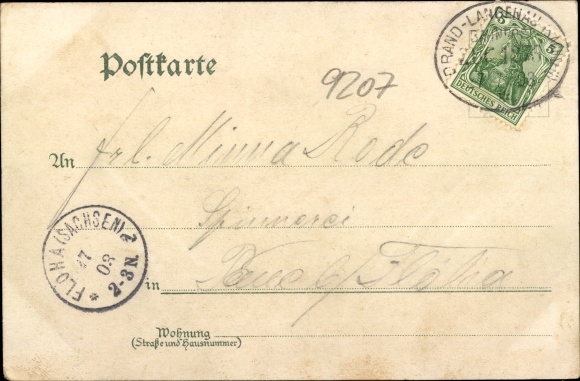 Postkarte
9207
5
DEUTSCHES REICH
BRAND-LANGENAU
An frl. Minna Rode
Spinnerei
in b/ Flöha
FLÖHA (SACHSEN) 2
17
03
2-3 N.
*
Wohnung
(Straße und Hausnummer)